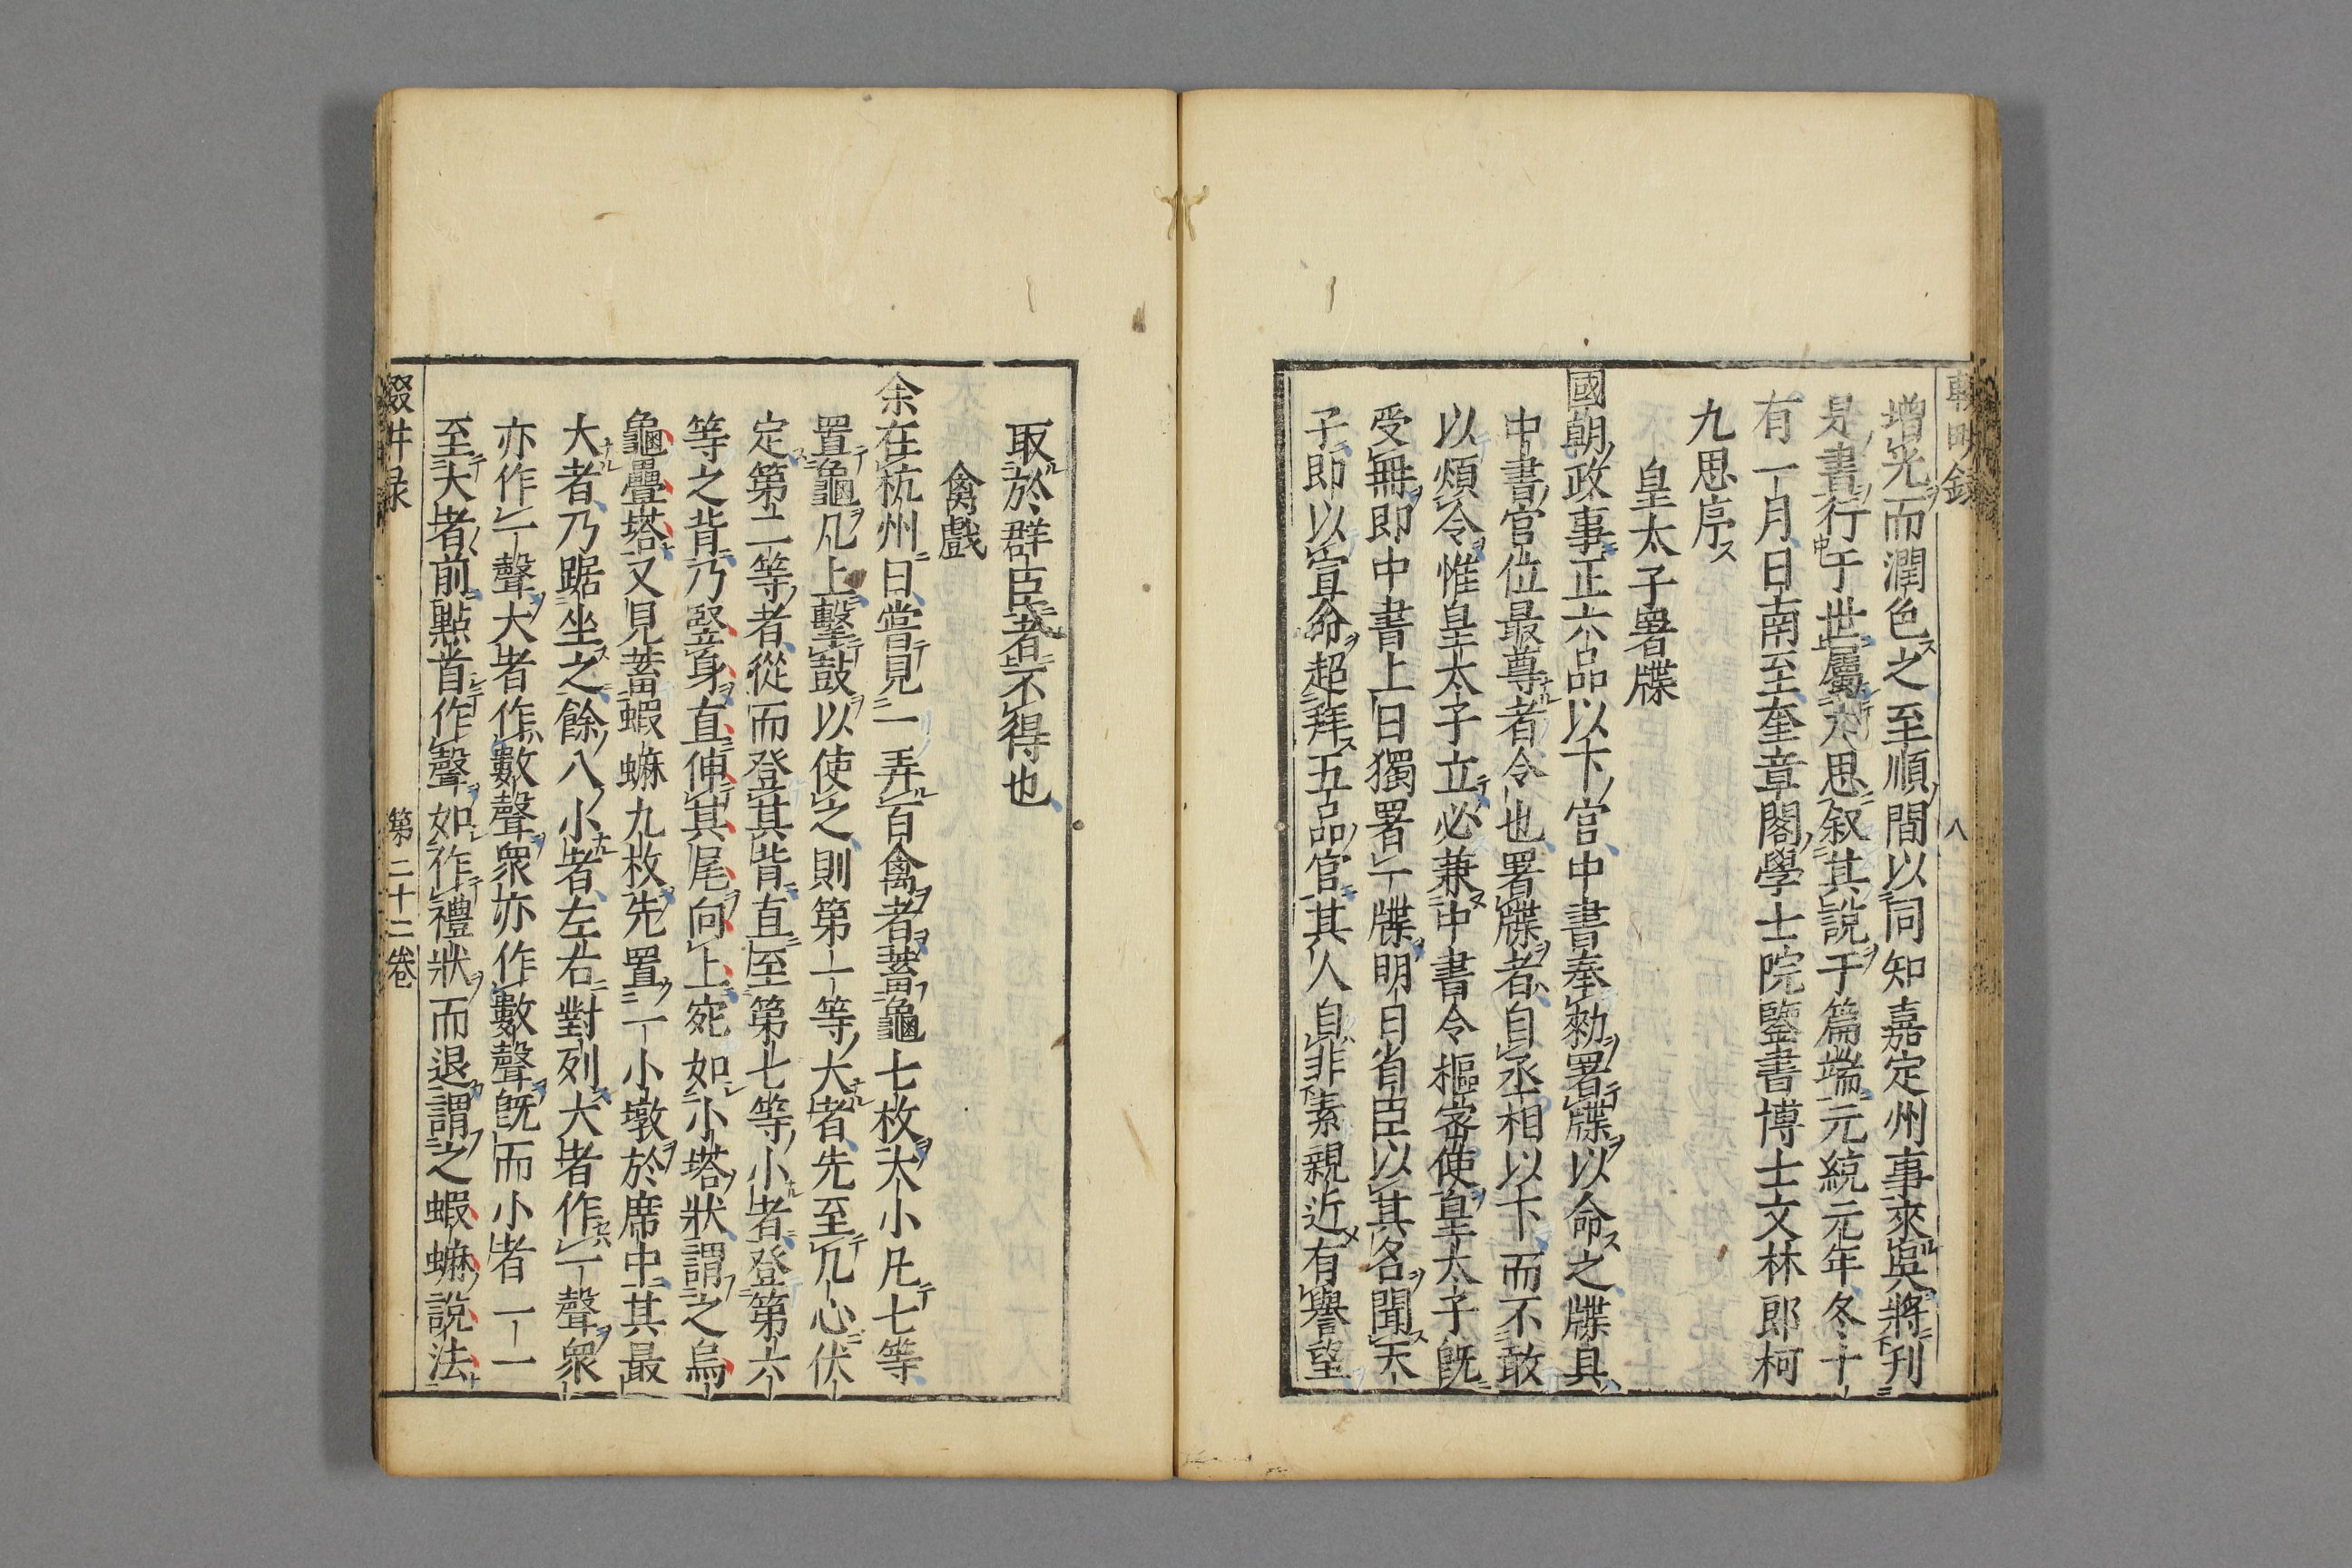 輟畊録
八
增光而潤色之至順間以同知嘉定州事來吳將刊
是書行于世屬九思叙其說于篇端元統元年冬十
有一月日南至奎章閣學士院鑒書博士文林郎柯
九思序
皇太子署牒
國朝政事正六品以下官中書奉勑署牒以命之牒具
中書官位最尊者令也署牒者自丞相以下而不敢
以煩令惟皇太子立必兼中書令樞密使皇太子既
受冊即中書上日獨署一牒明日省臣以其名聞天
子即以宣命超拜五品官其人自非素親近有譽望
取於群臣者不得也
禽戲
余在杭州日嘗見一弄百禽者蓄龜七枚大小凡七等
置龜几上擊鼓以使之則第一等大者先至几心伏
定第二等者從而登其背直至第七等小者登第六
等之背乃竪身直伸其尾向上宛如小塔狀謂之烏
龜疊塔又見蓄蝦蟆九枚先置一小墩於席中其最
大者乃踞坐之餘八小者左右對列大者作一聲衆
亦作一聲大者作數聲衆亦作數聲既而小者一一
至大者前㸃首作聲如作禮狀而退謂之蝦蟆說法
輟畊录
第二十二卷